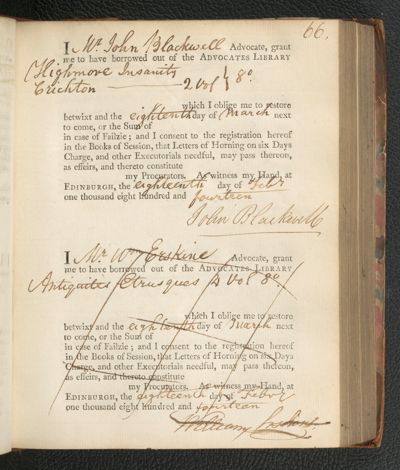 66.
I Mr. John Blackwell Advocate, grant
me to have borrowed out of the ADVOCATES LIBRARY
Highmore Insanity
Crichton 2 Vol } 8o.
which I oblige me to restore
betwixt and the eighteenth day of March next
to come, or the Sum of
in case of Failzie; and I consent to the registration hereof
in the Books of Session, that Letters of Horning on six Days
Charge, and other Executorials needful, may pass thereon,
as effeirs, and thereto constitute
my Procurators. As witness my Hand, at
EDINBURGH, the eighteenth day of Febr
one thousand eight hundred and fourteen
John Blackwell
I Mr. Wm Erskine Advocate, grant
me to have borrowed out of the ADVOCATES LIBRARY
Antiquites Etrusques 2 Vol 8o.
which I oblige me to restore
betwixt and the eighteenth day of March next
to come, or the Sum of
in case of Failzie; and I consent to the registration hereof
in the Books of Session, that Letters of Horning on six Days
Charge, and other Executorials needful, may pass thereon,
as effeirs, and thereto constitute
my Procurators. As witness my Hand, at
EDINBURGH, the eighteenth day of Febr
one thousand eight hundred and fourteen
William Erskine